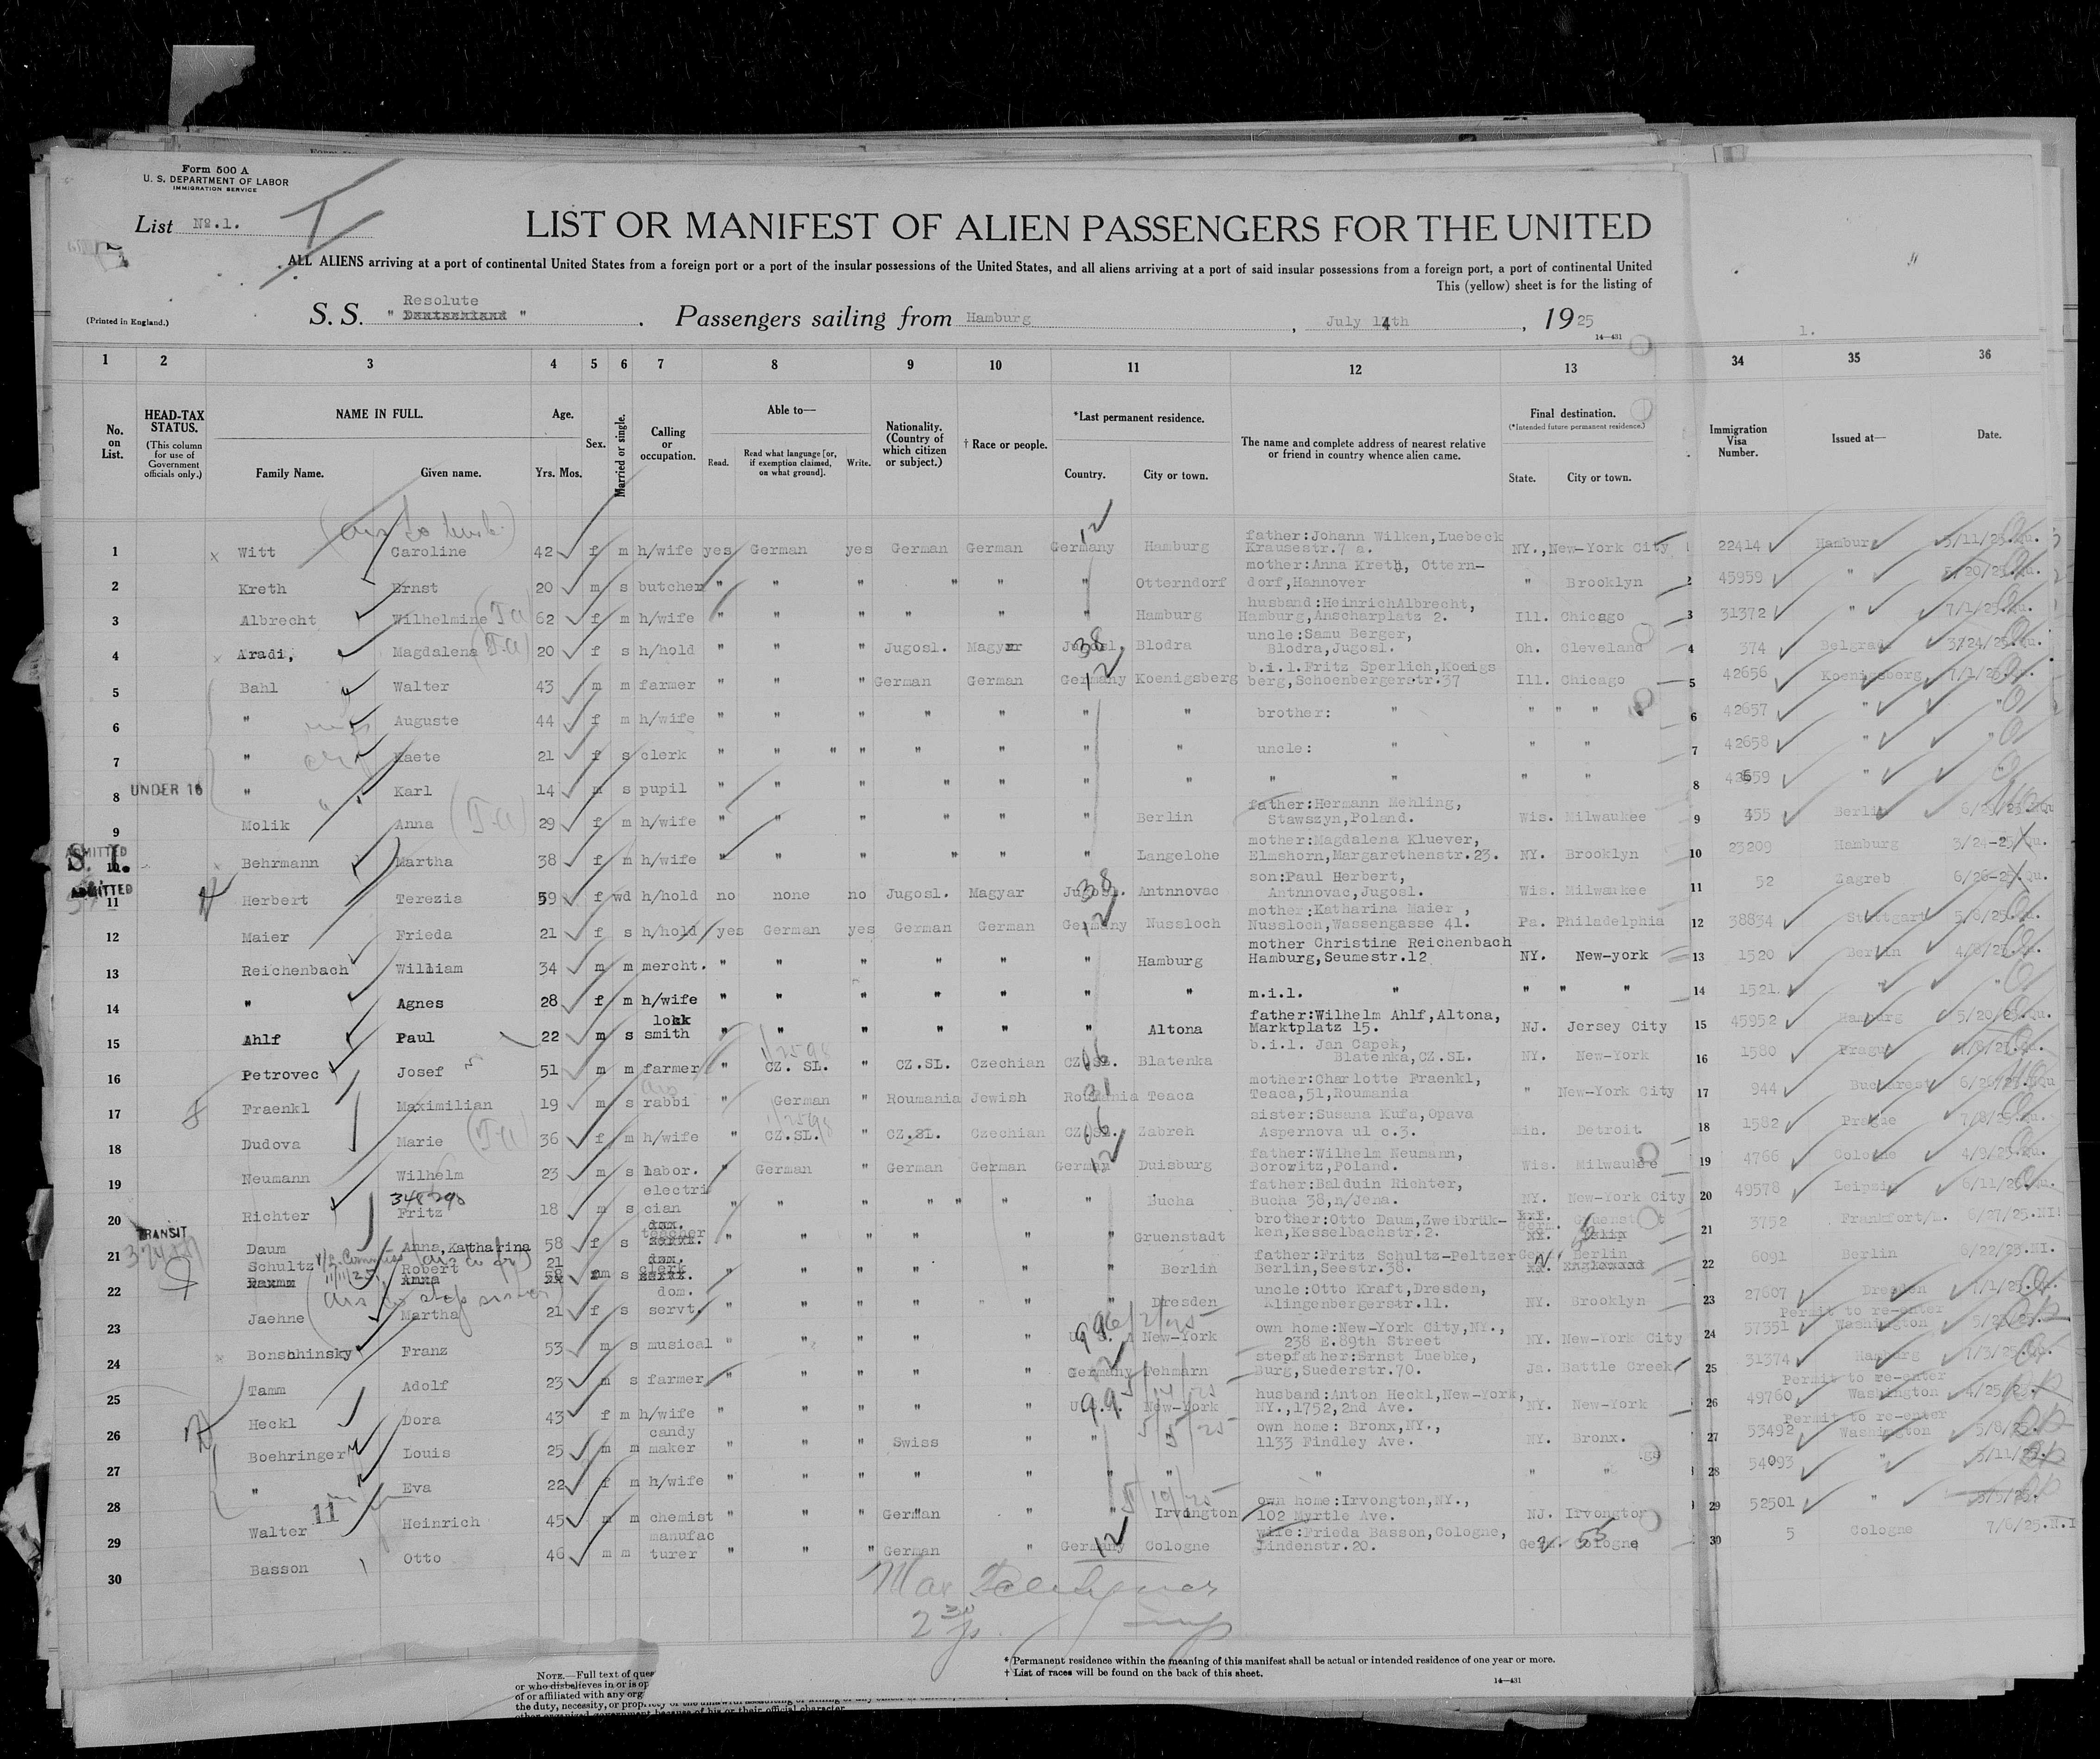 Form 500 A
U. S. DEPARTMENT OF LABOR
IMMIGRATION SERVICE
List No.1.
LIST OR MANIFEST OF ALIEN PASSENGERS FOR THE UNITED
ALL ALIENS arriving at a port of continental United States from a foreign port or a port of the insular possessions of the United States, and all aliens arriving at a port of said insular possessions from a foreign port, a port of continental United
This (yellow) sheet is for the listing of
(Printed in England.)
Resolute
S. S. " Deutschland " . Passengers sailing from Hamburg , July 14th , 1925
14—431
1.
1 2 3 4 5 6 7 8 9 10 11 12 13 34 35 36
No. on List.
HEAD-TAX STATUS. (This column for use of Government officials only.)
NAME IN FULL. Family Name. Given name.
Age. Yrs. Mos.
Sex.
Married or single.
Calling or occupation.
Able to— Read. Read what language [or, if exemption claimed, on what ground]. Write.
Nationality. (Country of which citizen or subject.)
† Race or people.
*Last permanent residence. Country. City or town.
The name and complete address of nearest relative or friend in country whence alien came.
Final destination. (*Intended future permanent residence.) State. City or town.
Immigration Visa Number.
Issued at—
Date.
1 x Witt Caroline 42 f m h/wife yes German yes German German Germany Hamburg father:Johann Wilken,Luebeck Krausestr.7 a. NY.,New-York City 1 22414 Hamburg 5/11/25.Qu.
2 Kreth Ernst 20 m s butcher " " " " " " Otterndorf mother:Anna Kreth, Otterndorf,Hannover " Brooklyn 2 45959 " 5/20/25.Qu.
3 Albrecht Wilhelmine 62 f m h/wife " " " " " " Hamburg husband:HeinrichAlbrecht, Hamburg,Anscharplatz 2. Ill. Chicago 3 31372 " 7/1/25.Qu.
4 x Aradi, Magdalena 20 f s h/hold " " " Jugosl. Magyar Jugosl. Blodra uncle:Samu Berger, Blodra,Jugosl. Oh. Cleveland 4 374 Belgrad 3/24/25.Qu.
5 Bahl Walter 43 m m farmer " " " German German Germany Koenigsberg b.i.l.Fritz Sperlich,Koenigsberg,Schoenbergerstr.37 Ill. Chicago 5 42656 Koenigsberg 7/1/25.Qu.
6 " Auguste 44 f m h/wife " " " " " " " brother: " " " " 6 42657 " "
7 " Kaete 21 f s clerk " " " " " " " " uncle: " " " 7 42658 " "
8 UNDER 16 " Karl 14 m s pupil " " " " " " " " " " " 8 42659 " "
9 Molik Anna 29 f m h/wife " " " " " " Berlin father:Hermann Mehling, Stawszyn,Poland. Wis. Milwaukee 9 455 Berlin
ADMITTED S. I.
10 Behrmann Martha 38 f m h/wife " " " " " " Langelohe mother:Magdalena Kluever, Elmshorn,Margarethenstr.23. NY. Brooklyn 10 23209 Hamburg 3/24-25 Qu.
ADMITTED
11 Herbert Terezia 59 f wd h/hold no none no Jugosl. Magyar Jugosl. Antnnovac son:Paul Herbert, Antnnovac,Jugosl. Wis. Milwaukee 11 52 Zagreb 6/26-25.Qu.
12 Maier Frieda 21 f s h/hold yes German yes German German Germany Nussloch mother:Katharina Maier , Nussloch,Wassengasse 41. Pa. Philadelphia 12 38834 Stuttgart 5/6/25.Qu.
13 Reichenbach William 34 m m mercht. " " " " " " Hamburg mother Christine Reichenbach Hamburg,Seumestr.12 NY. New-york 13 1520 Berlin 4/8/25.Qu.
14 " Agnes 28 f m h/wife " " " " " " " m.i.l. " " " " 14 1521. " "
15 Ahlf Paul 22 m s lock smith " " " " " " Altona father:Wilhelm Ahlf,Altona, Marktplatz 15. NJ. Jersey City 15 45952 Hamburg 5/20/25.Qu.
16 Petrovec Josef 51 m m farmer " CZ. SL. " CZ.SL. Czechian CZ.SL. Blatenka b.i.l. Jan Capek, Blatenka,CZ.SL. NY. New-York 16 1580 Prague
17 Fraenkl Maximilian 19 m s rabbi " German " Roumania Jewish Roumania Teaca mother:Charlotte Fraenkl, Teaca,51,Roumania " New-York City 17 944 Bucharest
18 Dudova Marie 36 f m h/wife " CZ.SL. " CZ.SL. Czechian CZ.SL. Zabreh sister:Susana Kufa,Opava Aspernova ul c.3. Mic. Detroit 18 1582 Prague 7/8/25.Qu.
19 Neumann Wilhelm 23 m s labor. " German " German German German Duisburg father:Wilhelm Neumann, Borowitz,Poland. Wis. Milwaukee 19 4766 Cologne 4/9/25.Qu.
20 Richter Fritz 18 m s electrician " " " " " " " Bucha father:Balduin Richter, Bucha 38,n/Jena. NY. New-York City 20 49578 Leipzig 6/11/25.Qu.
21 TRANSIT Daum Anna,Katharina 58 f s teacher " " " " " " Gruenstadt brother:Otto Daum,Zweibrükken,Kesselbachstr.2. Germ. Gruenstadt 21 3752 Frankfort/M. 6/27/25.NI
22 Schultz Robert 21 m s clerk " " " " " " Berlin father:Fritz Schultz-Peltzer Berlin,Seestr.38. Berlin 22 6091 Berlin 6/22/25.NI.
23 Jaehne Martha 21 f s dom. servt. " " " " " " Dresden uncle:Otto Kraft,Dresden, Klingenbergerstr.11. NY. Brooklyn 23 27607 Dresden
24 Bonschhinsky Franz 53 m s musical " " " " " New-York own home:New-York City,NY., 238 E.89th Street NY. New-York City 24 57351 Permit to re-enter Washington
25 Tamm Adolf 23 m s farmer " " " " " Germany Fehmarn stepfather:Ernst Luebke, Burg,Suederstr.70. Ja. Battle Creek 25 31374 Hamburg
26 Heckl Dora 43 f m h/wife " " " " " New-York husband:Anton Heckl,New-York, NY.,1752,2nd Ave. NY. New-York 26 49760 Permit to re-enter Washington 4/25/25.
27 Boehringer Louis 25 m m candy maker " " " Swiss " " " own home: Bronx,NY., 1133 Findley Ave. NY. Bronx. 27 53492 Permit to re-enter Washington 5/8/25.
28 " Eva 22 f m h/wife " " " " " " " " " " 28 54093 "
29 11 Walter Heinrich 45 m m chemist " " " German " " Irvington own home:Irvongton,NY., 102 Myrtle Ave. NJ. Irvongton 29 52501 "
30 Basson Otto 46 m m manufacturer " " " German " Germany Cologne wife:Frieda Basson,Cologne, Lindenstr.20. Cologne 30 5 Cologne 7/6/25.N.I
* Permanent residence within the meaning of this manifest shall be actual or intended residence of one year or more.
† List of races will be found on the back of this sheet.
14—431
NOTE.—Full text of ques
or who disbelieves in or is op
of or affiliated with any org
the duty, necessity, or propriety of the unlawful assaulting or killing of any
other organized government because of his or their official character